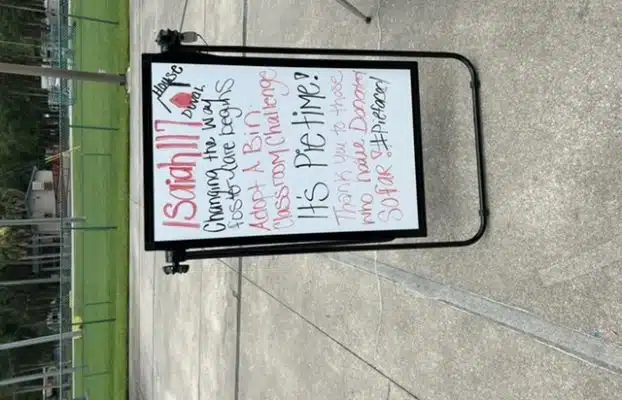 Isaiah 117 House
Duval
Changing the way
foster care begins
Adopt A Bin
Classroom Challenge
It's Pie Time!
Thank you to those
who have Donated
So far! #Pietacon